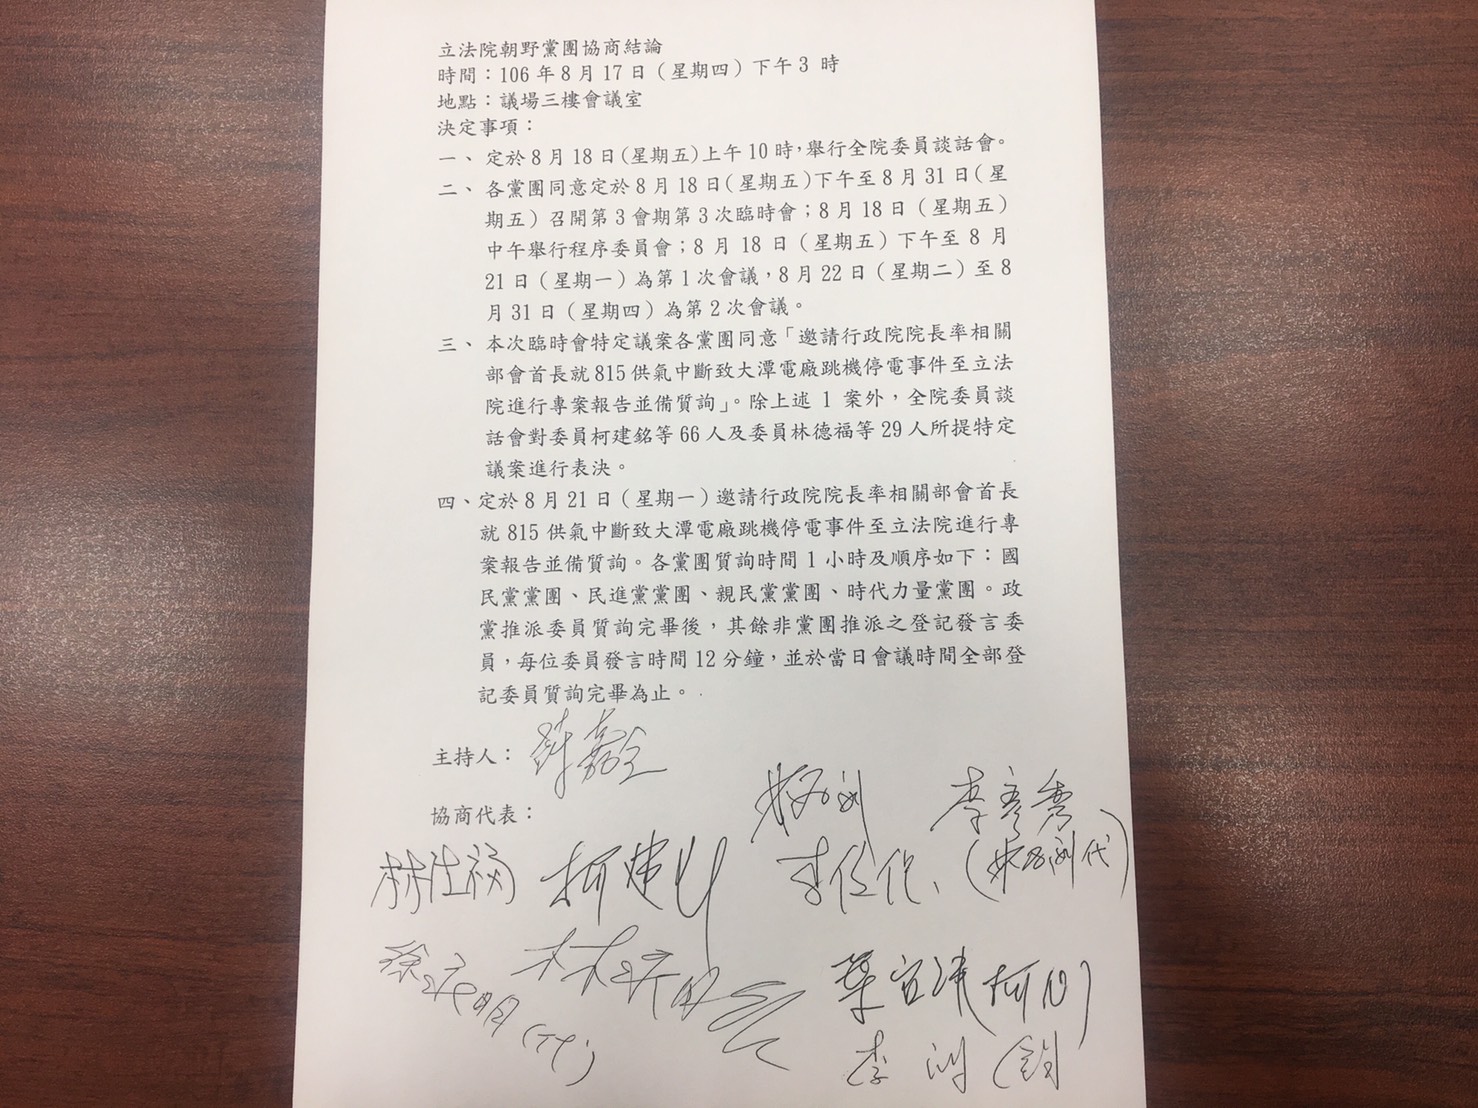 立法院朝野黨團協商結論
時間：106年8月17日（星期四）下午3 時
地點：議場三樓會議室
決定事項：
一、定於8月18日(星期五)上午10時，舉行全院委員談話會。
二、各黨團同意定於8月18日(星期五)下午至8月31日(星
期五）召開第3會期第3次臨時會；8月18日（星期五）
中午舉行程序委員會；8月18日（星期五）下午至8月
21日（星期一）為第1次會議，8月22日（星期二）至8
月31日（星期四）為第2次會議。
三、本次臨時會特定議案各黨團同意「邀請行政院院長率相關
部會首長就815供氣中斷致大潭電廠跳機停電事件至立法
院進行專案報告並備質詢」。除上述1案外，全院委員談
話會對委員柯建銘等66人及委員林德福等29人所提特定
議案進行表決。
四、定於8月21日（星期一）邀請行政院院長率相關部會首長
就815供氣中斷致大潭電廠跳機停電事件至立法院進行專
案報告並備質詢。各黨團質詢時間1小時及順序如下：國
民黨黨團、民進黨黨團、親民黨黨團、時代力量黨團。政
黨推派委員質詢完畢後，其餘非黨團推派之登記發言委
員，每位委員發言時間12分鐘，並於當日會議時間全部登
記委員質詢完畢為止。
主持人：
協商代表：
李彥秀